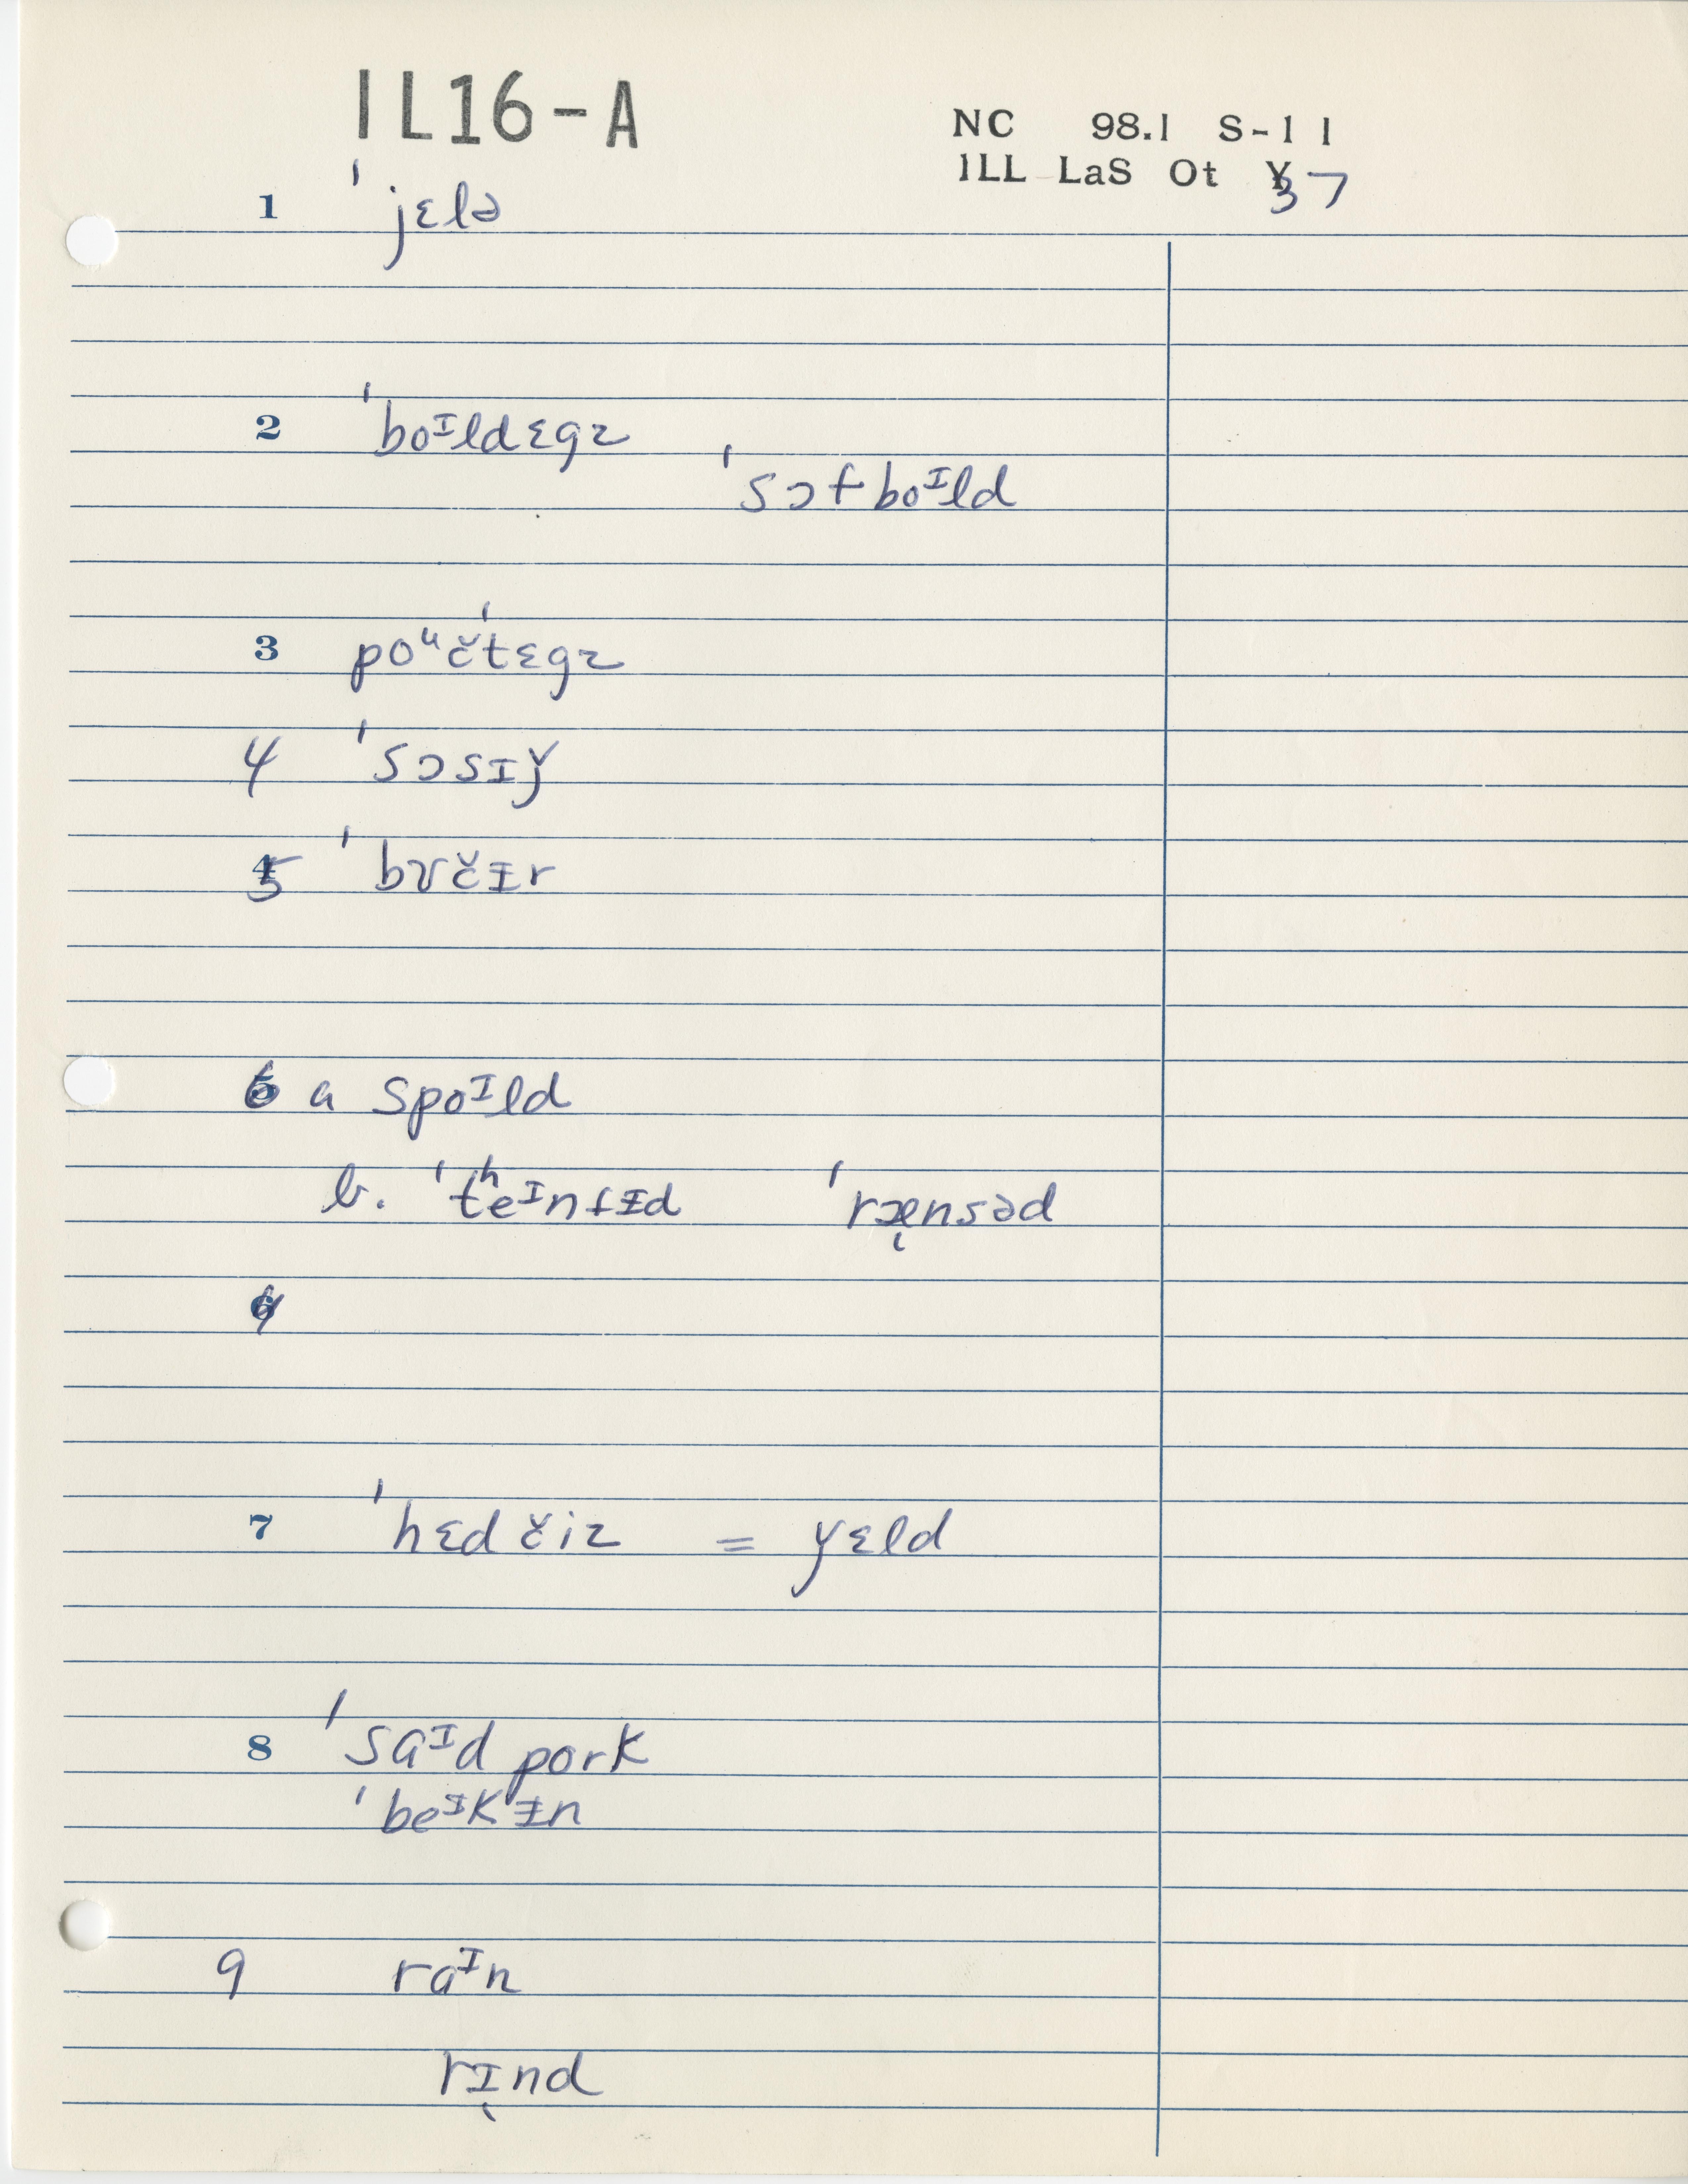 IL16-A
NC 98.1 S-11
ILL LaS Ot 37
1 ˈjɛlə
2 ˈboᶦldɛgz
ˈsɔftboᶦld
3 poᵘčˈtɛgz
4 ˈsɔsɪǰ
5 ˈbʊčɨr
6 a spoᶦld
b. ˈtʰeᶦntɨd ˈræ̨nsəd
7 ˈhɛdčiz = yɛld
8 ˈsaᶦd pork
ˈbeᶦkɨn
9 raᶦn
rɪ̨nd